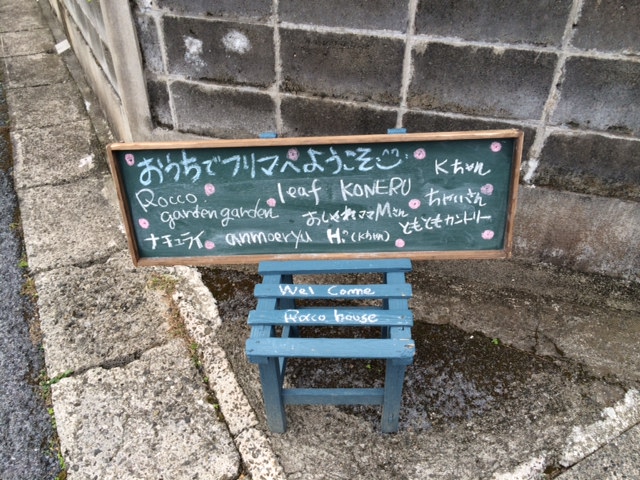 おうちでフリマへようこそ Kちゃん
Rocco leaf KONERU ちゃいさん
garden garden おしゃれママMさん
ナチュライ anmoeryu H.º ともともカントリー
Wel Come
Rocco house